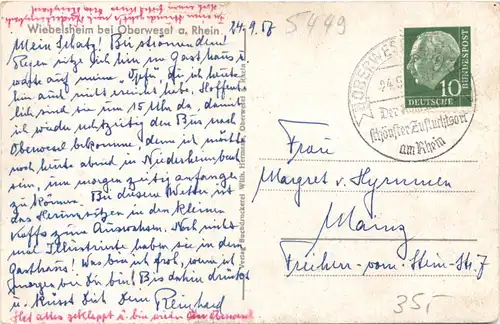 Wiebelsheim bei Oberwesel a. Rhein
24.9.58
5449
Mein Schatz! Bei strömendem
Regen sitz ich hier im Gasthaus u.
warte auf meine
hier auch nicht erreicht habe. Hoffent-
lich sind sie um 15 Uhr da, damit
ich wieder rechtzeitig den Bus nach
Oberwesel bekomme, denn ich möchte
noch heute abend in Niederheimbach
sein, um morgen zeitig anfangen
zu können. Bei diesem Wetter ist
das Herumsitzen in den kleinen
Kaffs zum Auswachsen. Noch nicht
mal Illustrierte haben sie in dem
Gasthaus! Was bin ich froh, wenn ich
morgen bei Dir bin! Bis dahin drückt
u. küsst Dich Dein Reinhard
Hat alles geklappt u. bin wieder in Oberwesel
Verlag Buchdruckerei Wilh. Hermann, Oberwesel a. Rhein
DEUTSCHE BUNDESPOST
10
schönster Zufluchtsort
am Rhein
Frau
Margret v. Hymmen
Mainz
Freiherr-vom-Stein-Str. 7
35,-